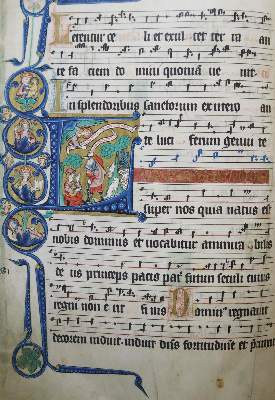 Letentur celi et exul tet terra an
te faciem domini quoniam ue nit
In splendoribus sanctorum ex utero an
te luciferum genui te
Lux
super nos quia natus est
nobis dominus et vocabitur ammirabilis
deus princeps pacis pater futuri seculi cuius
regni non erit finis Dominus regnauit
decorem induit induit dominus fortitudinem et precinxit